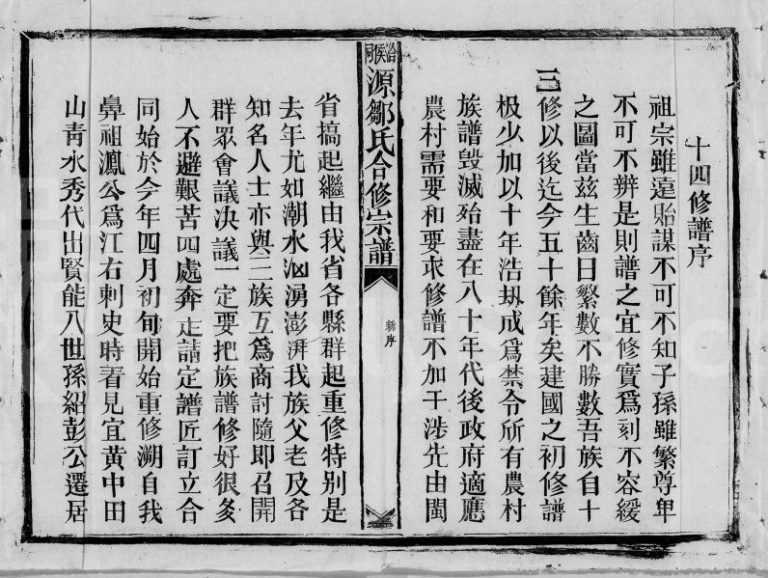 十四修譜序
祖宗雖遠貽謀不可不知子孫雖繁尊年
不可不辨是則譜之宜修實爲刻不容緩
之圖當兹生齒日繁數不勝數吾族自十
三修以後迄今五十餘年矣建國之初修譜
极少加以十年浩刼成爲禁令所有農村
族譜毀滅殆盡在八十年代後政府適應
農村需要和要求修譜不加干涉先由閩
源鄒氏合修宗譜
新序
省搞起繼由我省各縣群起重修特别是
去年尤如潮水汹湧澎湃我族父老及各
知名人士亦與二族互爲商討隨即召開
群眾會議决議一定要把族譜修好很多
人不避艱苦四處奔走請定譜匠訂立合
同始於今年四月初旬開始重修溯自我
鼻祖鳯公爲江右刺史時看見宜黄中田
山青水秀代出賢能八世孫紹彭公遷居